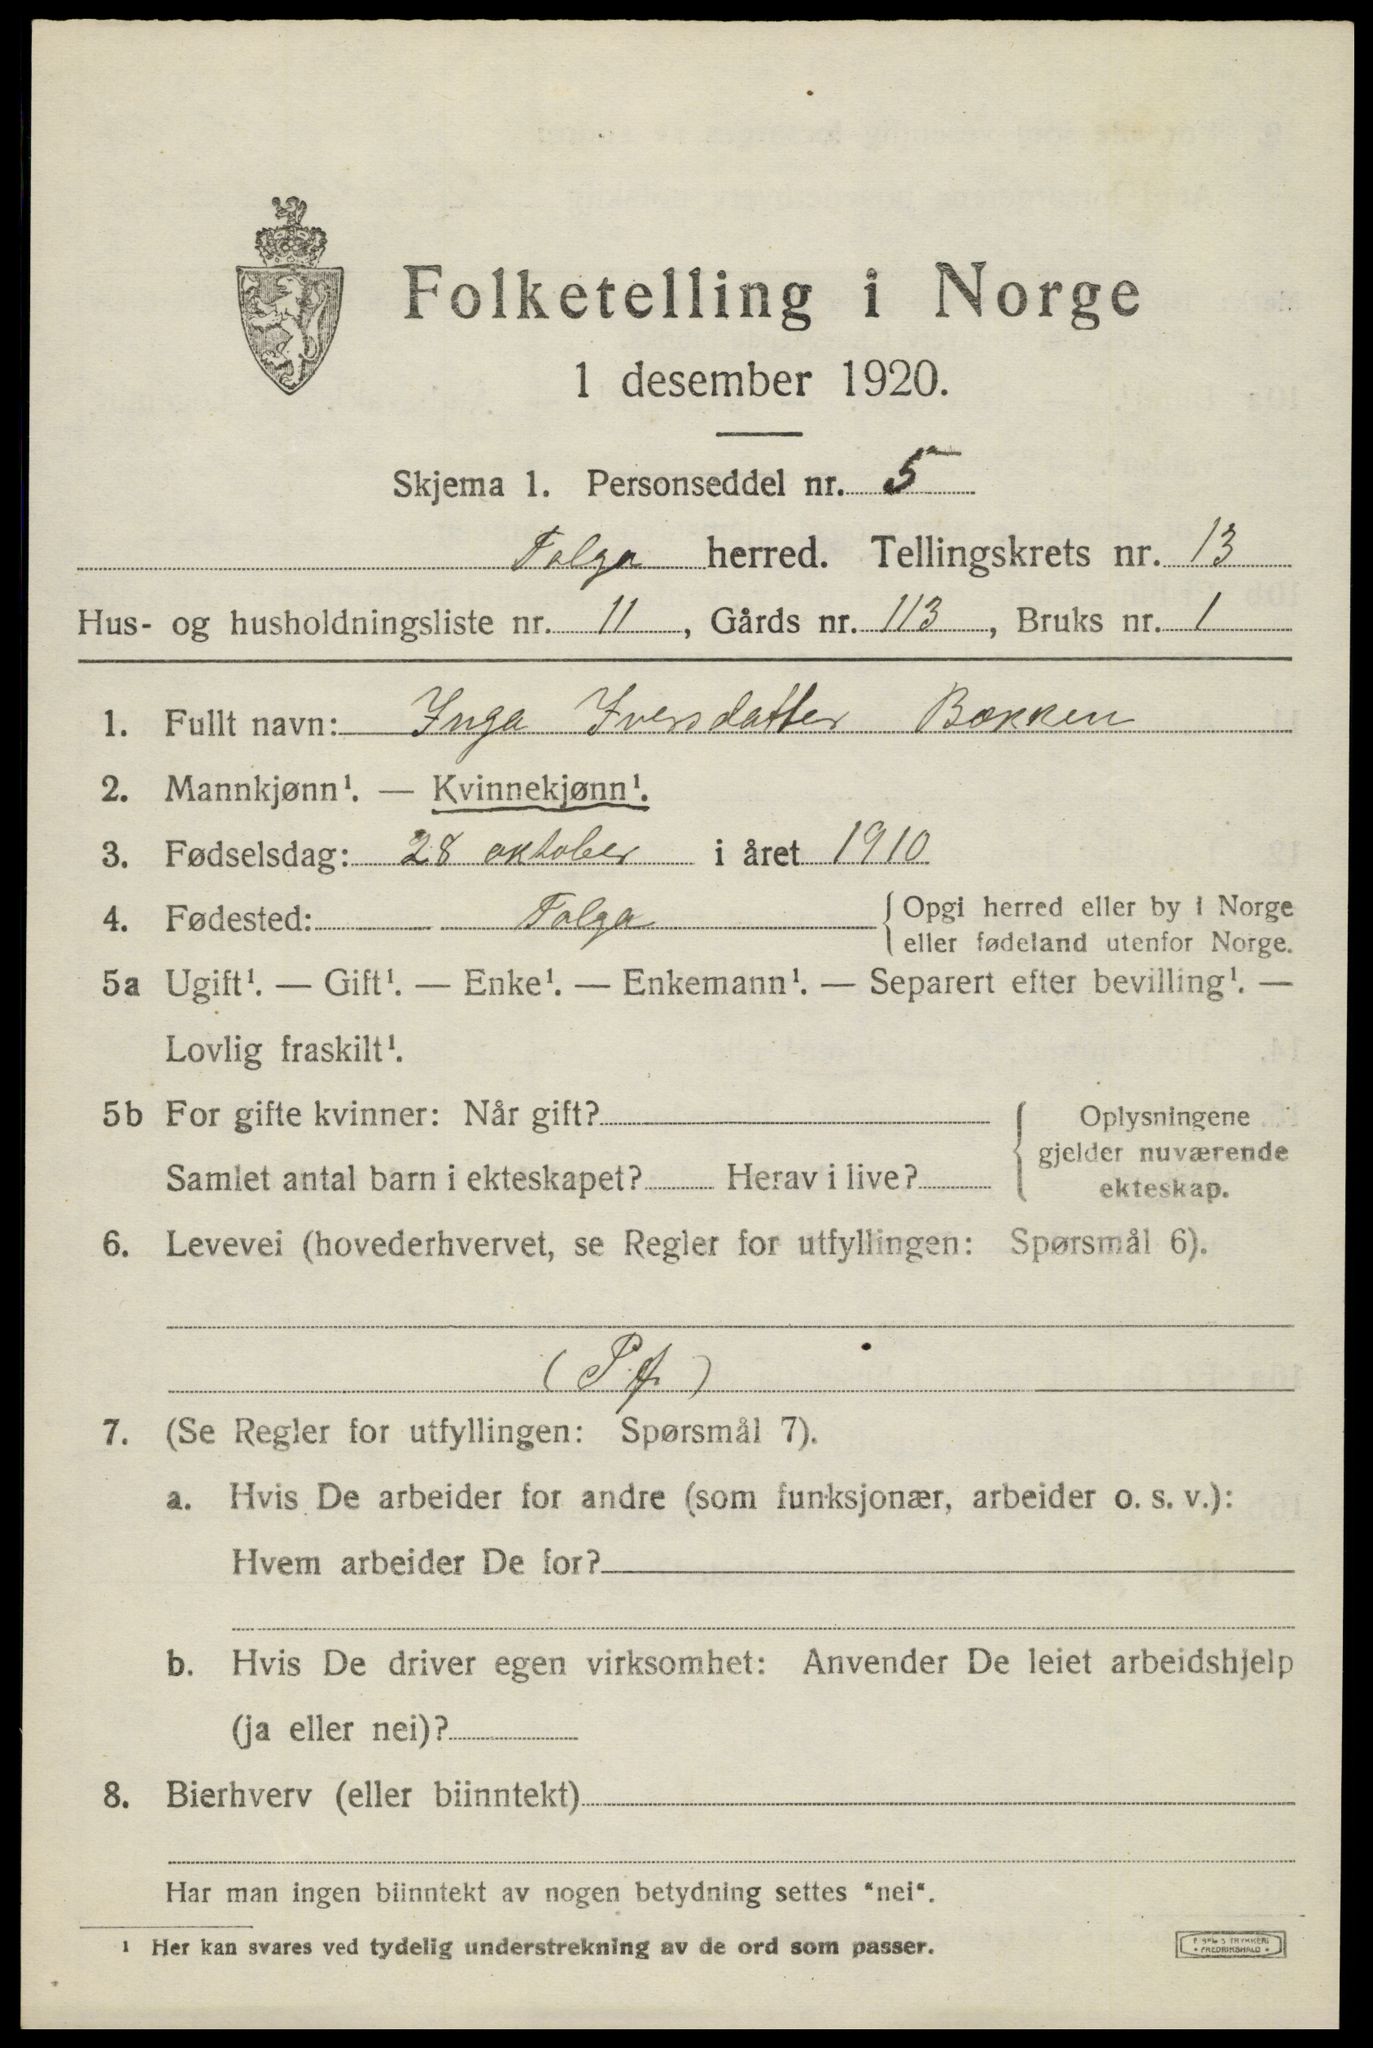 Folketelling i Norge
1 desember 1920.
Skjema 1. Personseddel nr. 5
Tolga herred. Tellingskrets nr. 13
Hus- og husholdningsliste nr. 11, Gårds nr. 113, Bruks nr. 1
1. Fullt navn: Inga Iversdatter Bækken
2. Mannkjønn¹. — Kvinnekjønn¹.
3. Fødselsdag: 28 oktober i året 1910
4. Fødested: Tolga { Opgi herred eller by i Norge
eller fødeland utenfor Norge.
5a Ugift¹. — Gift¹. — Enke¹. — Enkemann¹. — Separert efter bevilling¹. —
Lovlig fraskilt¹.
5b For gifte kvinner: Når gift?
Samlet antal barn i ekteskapet? Herav i live?
Oplysningene
gjelder nuværende
ekteskap.
6. Levevei (hovederhvervet, se Regler for utfyllingen: Spørsmål 6).
(P.f.)
7. (Se Regler for utfyllingen: Spørsmål 7).
a. Hvis De arbeider for andre (som funksjonær, arbeider o. s. v.):
Hvem arbeider De for?
b. Hvis De driver egen virksomhet: Anvender De leiet arbeidshjelp
(ja eller nei)?
8. Bierhverv (eller biinntekt)
Har man ingen biinntekt av nogen betydning settes "nei".
¹ Her kan svares ved tydelig understrekning av de ord som passer.
TRYKKERI
FREDRIKSHALD